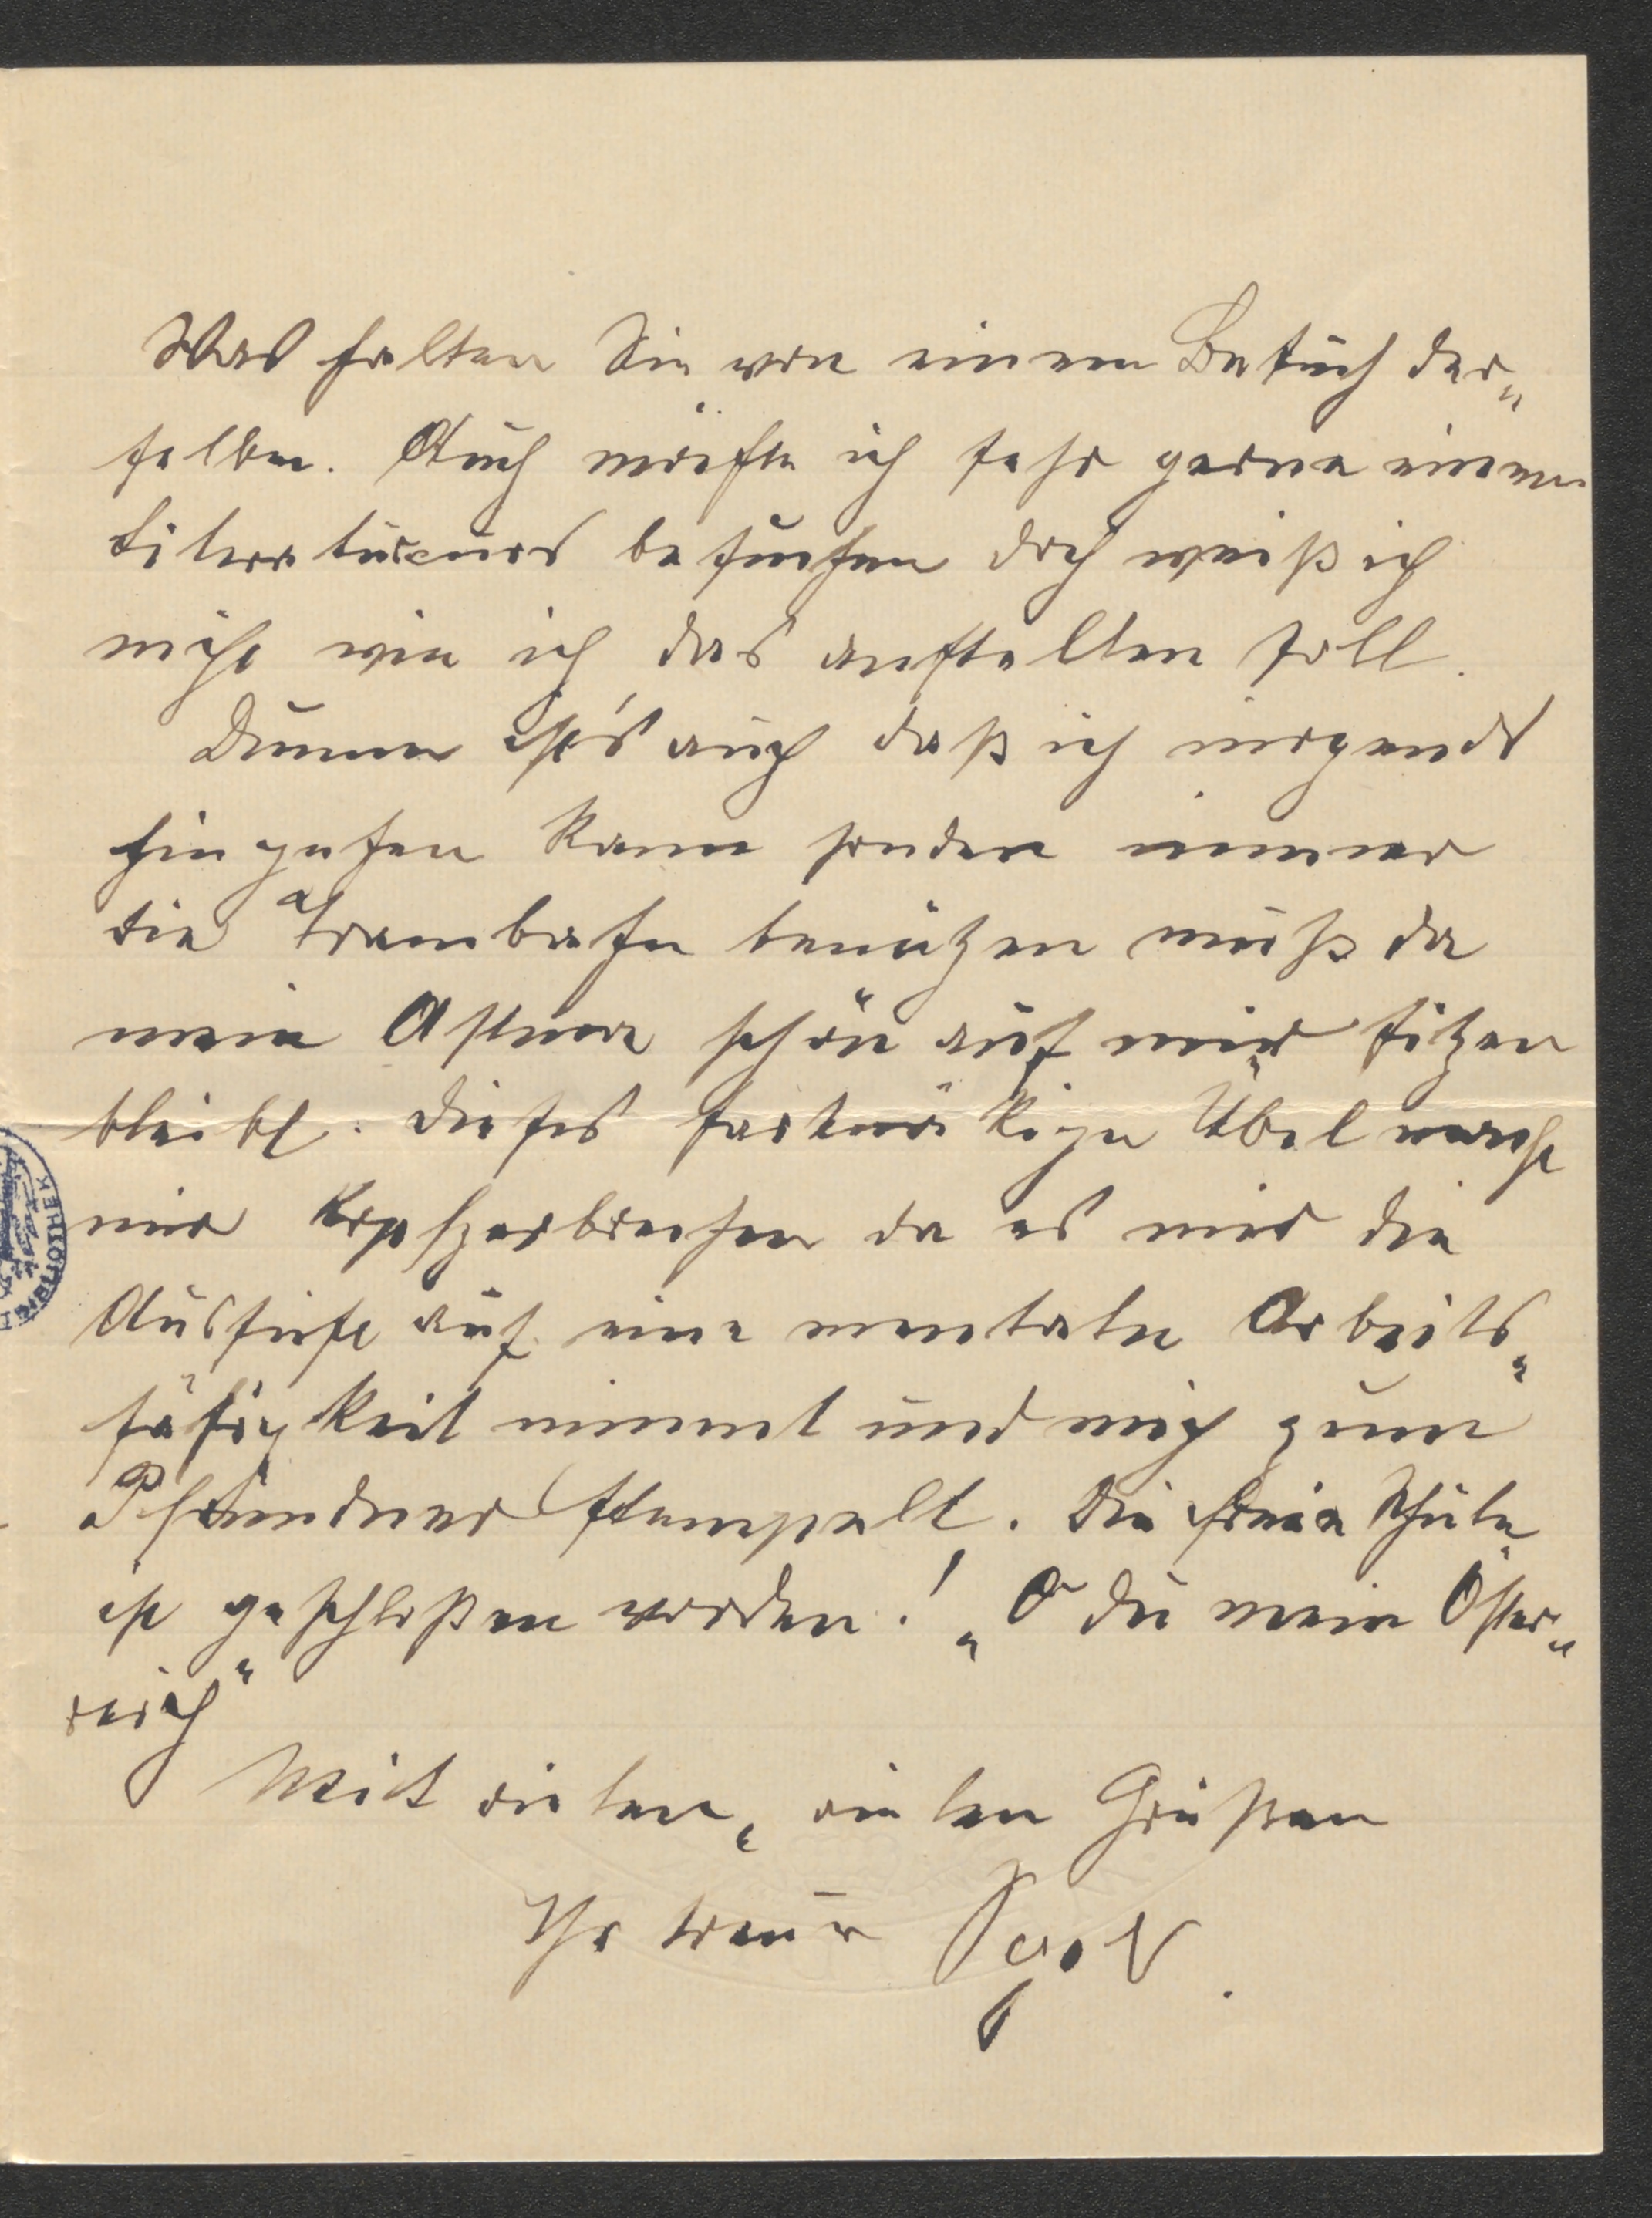 Was halten Sie von einem Besuch der„
selben. Auch möchte ich sehr gerne einen
Literaturcurs besuchen doch weiß ich
nicht wie ich das anstellen soll.
Dumm ist's auch daß ich nirgends
hingehen kann sonden immer
die Trambahn benützen muß da
mein Asthma schön auf mir sitzen
bleibt. Dieses hartnäkige Übel macht
mir Kopfzerbrechen da es mir die
Aussicht auf eine mentale Arbeits„
fähigkeit nimmt und mich zum
Pfründner stempelt. Die freie Schule
ist geschloßen worden! „O du mein Öster„
reich"
Mit vielen, vielen Grüßen
Ihr treuer